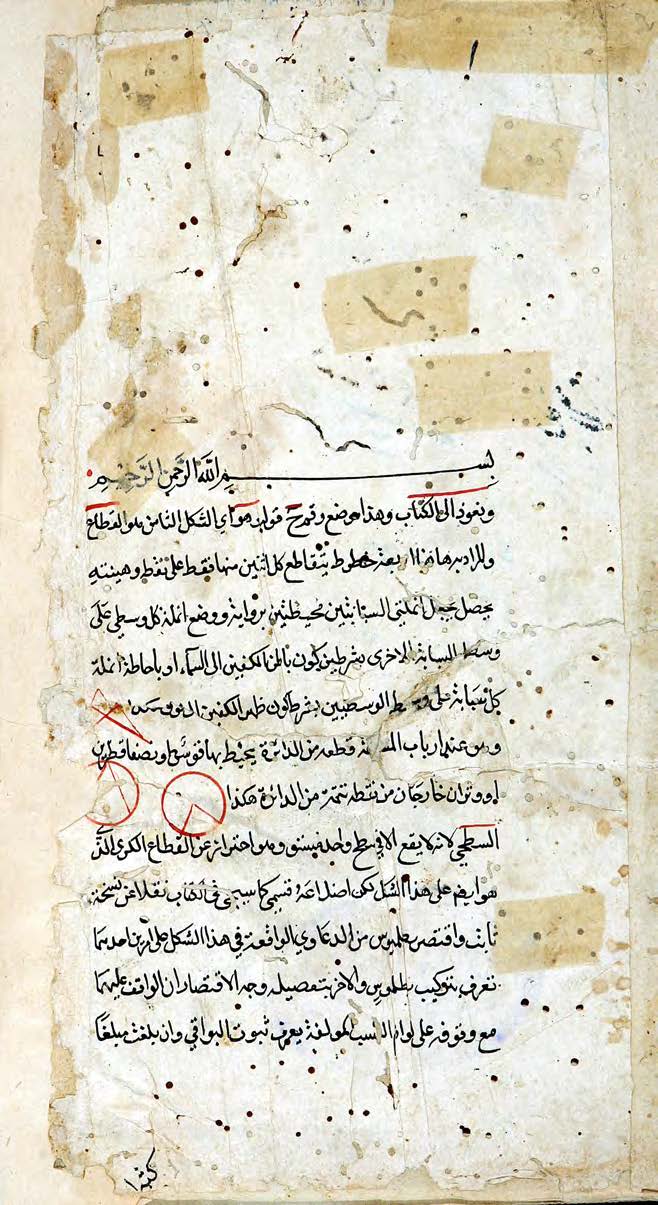 بسم الله الرحمن الرحيم
ونعود الى الكتاب وهذا موضع رقمه ح قوله هو اي الشكل الثامن هو القطاع
والمراد به هاهنا اربعة خطوط يتقاطع كل اثنين منها فقط على نقطة وهيئته
يحصل بجعل انملتي السبابتين محيطتين بزواية ووضع انملة كل وسطى على
وسط السبابة الاخرى بشرط كون باطن الكفين الى السماء او باحاطة انملة
كل سبابة على وسط الوسطيين بشرط كون ظهر الكفين الى
وهو عند ارباب قطعة من الدائرة يحيط بها قوس ونصفا قطرين
او وتران خارجان من نقطة تتمة من الدائرة هكذا
السطحي لانه لا يقع الا في سطح واحد مستو وهو احتراز عن القطاع الكري الذي
هو ايضا على هذا الشكل لكن اضلاعه قسي كما سيجئ في الكتاب نقلا عن نسخة
ثابت واقتصر بطلميوس من الدعاوي الواقعة في هذا الشكل على امرين احدهما
تعرف بتركيب بطلميوس والاخر بتفصيله وجه الاقتصار ان الواقف عليهما
مع وقوفه على لوازم النسب المولفة يعرف ثبوت البواقي وان بلغت مبلغا
كثيرا